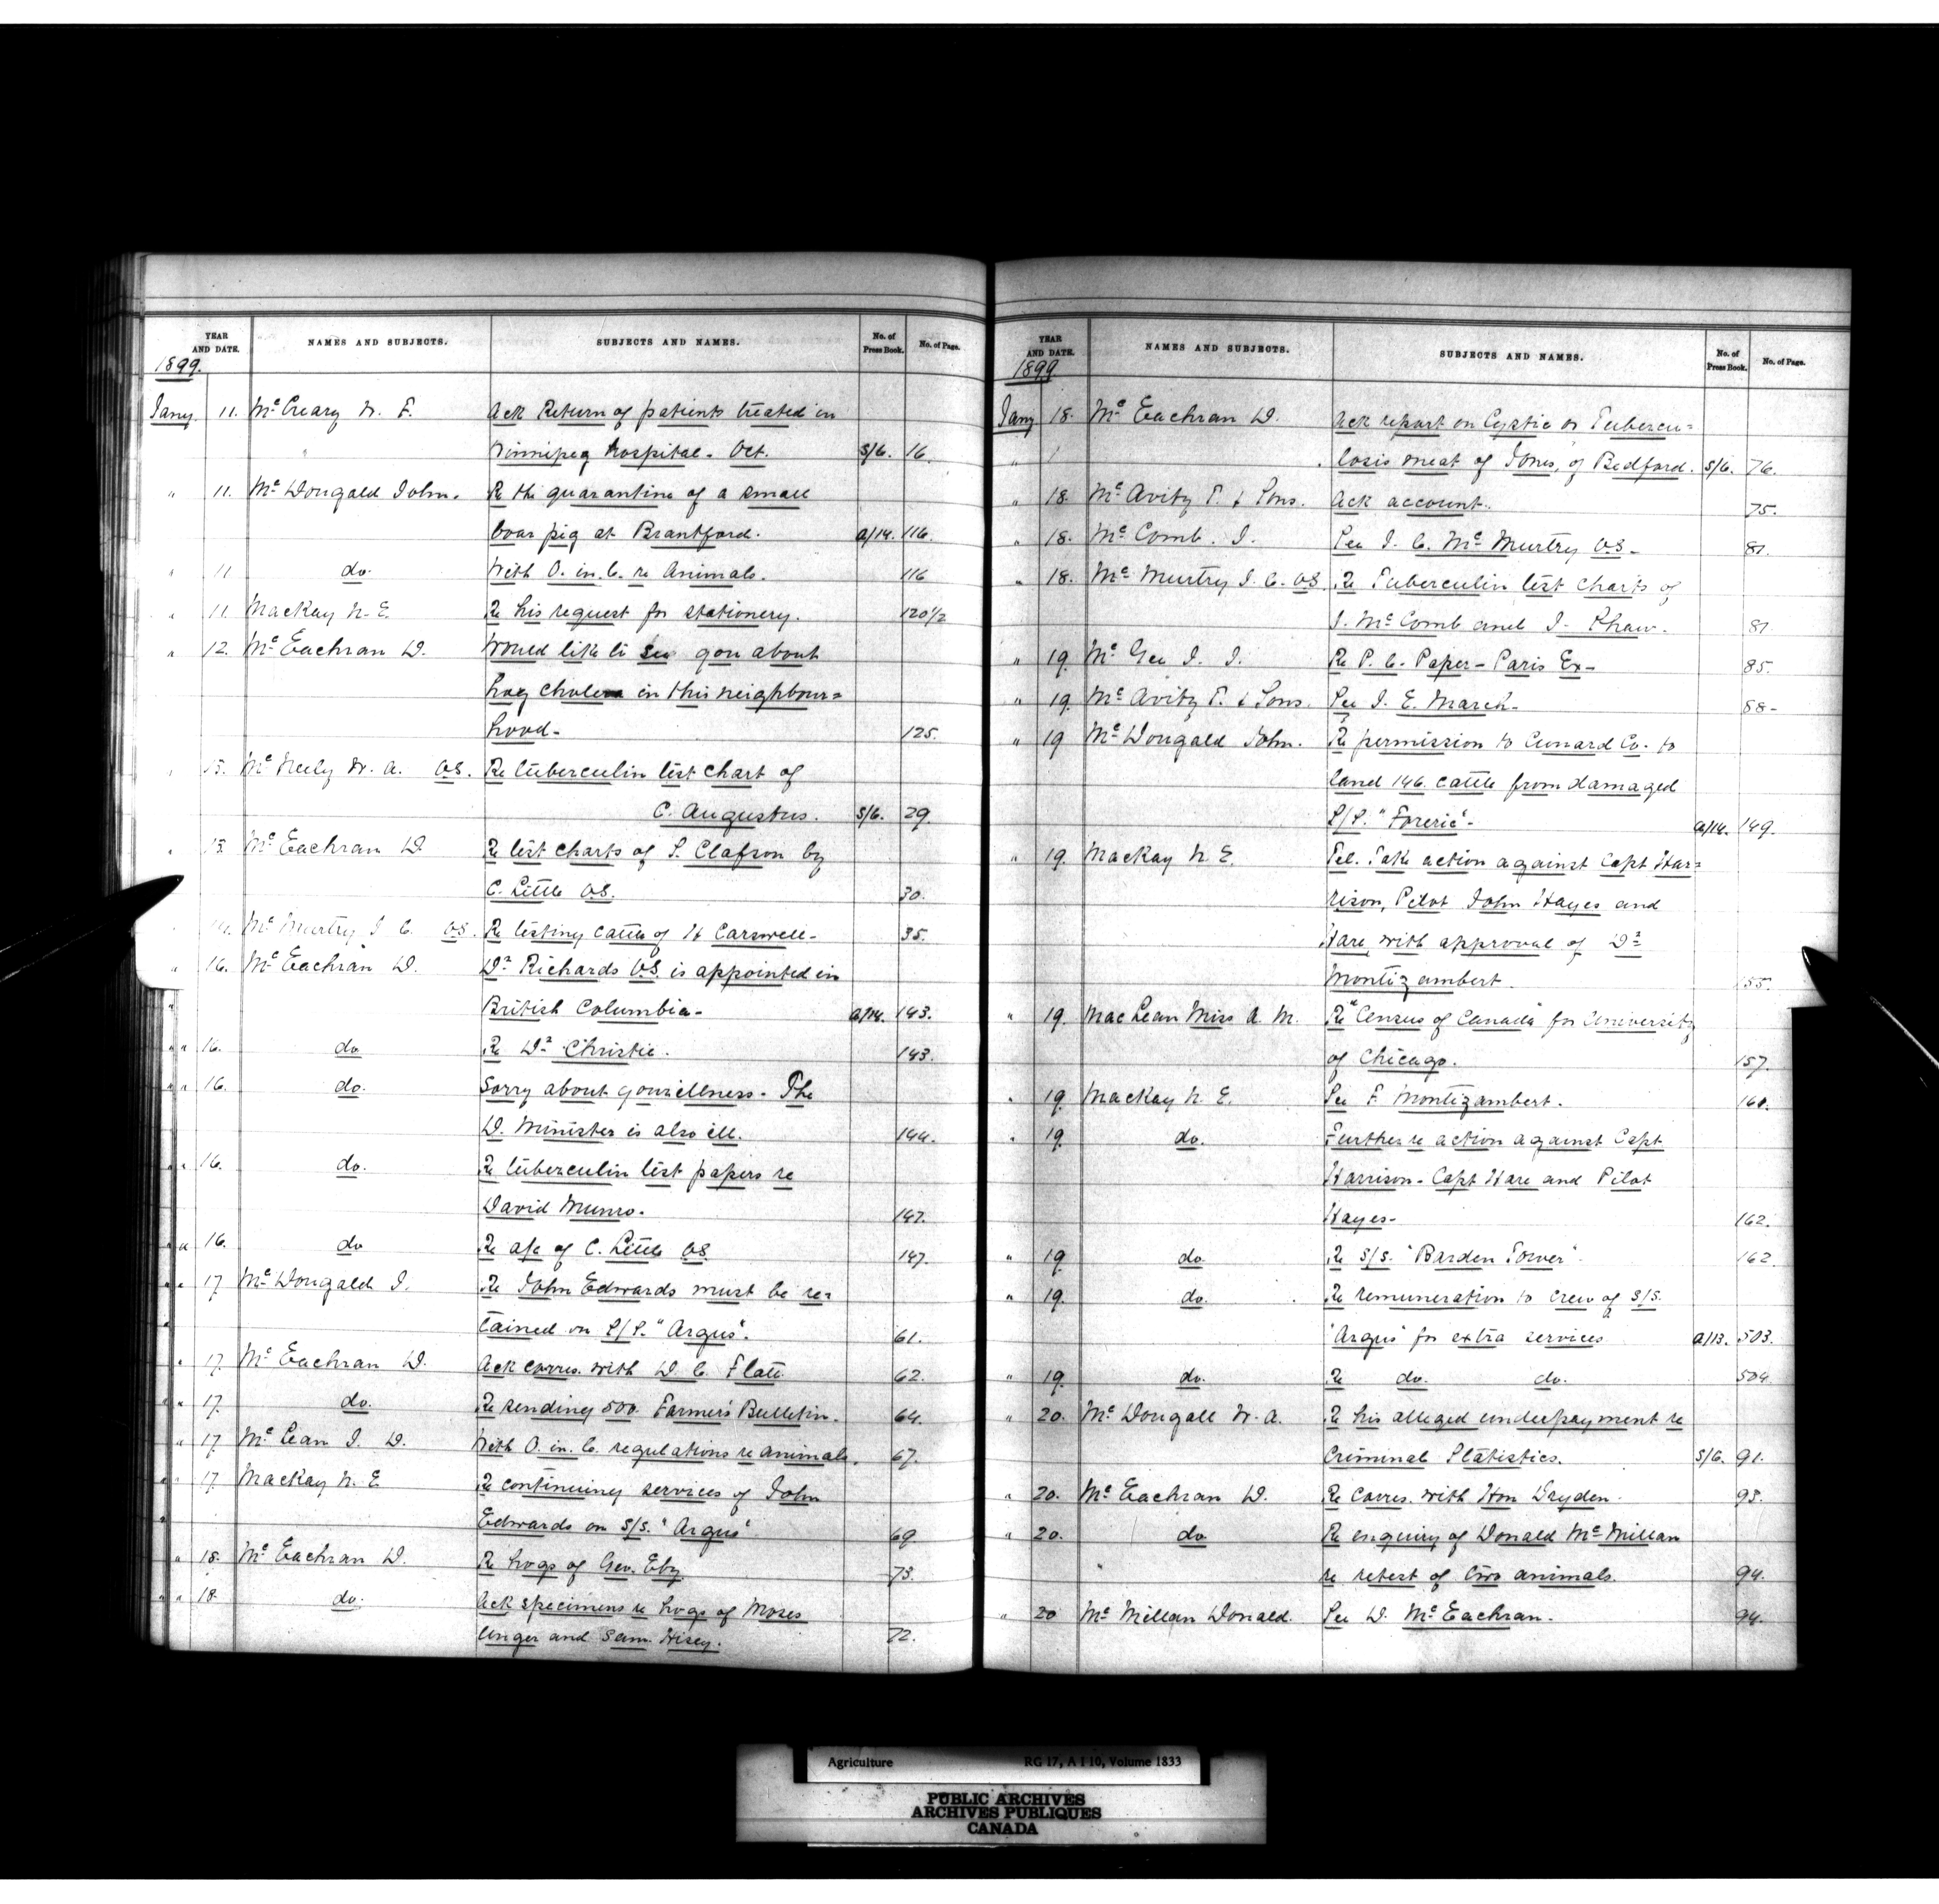 YEAR AND DATE. NAMES AND SUBJECTS. SUBJECTS AND NAMES. No. of Press Book. No. of Page.
1899.
Jany. 11. McCreary W. F. Ack Return of patients treated in
" Winnipeg hospital. Oct. S/6. 16.
" 11. McDougald John. Re the quarantine of a small
boar pig at Brantford. A/14. 116.
" 11 do. With O. in. C. re Animals. 116
" 11. MacKay N. E. Re his request for stationery. 120 1/2
" 12. McEachran D. Would like to see you about
hog cholera in this neighbour=
hood- 125.
" 13. McNeely W. A. V.S. Re tuberculin test chart of
C. Augustus. S/6. 29.
" 13. McEachran D. Re test charts of S. Clafson by
C. Little V.S. 30.
McMurtry J C. V.S. Re testing cattle of H Carswell- 35.
" 16. McEachran D. Dr Richards V.S. is appointed in
" British Columbia- A/14. 143.
" " 16. do Re Dr Christie. 143.
" " 16. do. Sorry about your illness. The
D. Minister is also ill. 144.
" " 16. do. Re tuberculin test papers re
David Munro. 147.
" " 16. do Re a/c of C. Little V.S. 147.
" " 17 McDougald J. Re John Edwards must be re=
tained on S/S. "Argus". 61.
" 17. McEachran D. Ack corres. with D. C. Flatt. 62.
" " 17. do. Re sending 500 Farmers Bulletin. 64.
" 17. McLean J. D. With O. in. C. regulations re animals. 67.
" " 17. MacKay N. E Re continuing services of John
Edwards on S/S. "Argus" 69
" " 18. McEachran D. Re hogs of Geo. Eby. 73.
" " 18. do. Ack specimens re hogs of Moses
Unger and Sam. Hisey. 72.
YEAR AND DATE. NAMES AND SUBJECTS. SUBJECTS AND NAMES. No. of Press Book. No. of Page.
1899
Jany 18. McEachran D. Ack report on Cystic or Tubercu=
" losis meat of Jones, of Bedford. S/6. 76.
" 18. McAvity T. & Sons. Ack account. 75.
" 18. McComb. J. See J. C. McMurtry V.S. 81.
" 18. McMurtry J. C. V.S. Re Tuberculin test charts of
J. McComb and J. Khaw. 81
" 19. McGee J. J. Re P. C. Paper - Paris Ex- 85.
" 19. McAvity T. & Sons. See J. E. March. 88-
" 19 McDougald John. Re permission to Cunard Co. to
land 146 cattle from damaged
S/S. "Foreric". A/14. 149.
" 19. MacKay N. E. Tel. Take action against Capt Har=
rison, Pilot John Hayes and
Hare, with approval of Dr
Montizambert. 155.
" 19. MacLean Miss A. M. Re "Census of Canada" for University
of Chicago. 157.
" 19. MacKay N. E. See F. Montizambert. 160.
" 19. do. Further re action against Capt
Harrison - Capt Hare and Pilot
Hayes- 162.
" 19 do. Re S/S. "Barden Tower". 162
" 19. do. Re remuneration to crew of S/S.
"Argus" for extra services A/13. 503.
" 19. do. Re do. do. 504.
" 20. McDougall W. A. Re his alleged underpayment re
Criminal Statistics. S/6. 91.
" 20. McEachran D. Re corres. with Hon Dryden. 93.
" 20. do Re enquiry of Donald McMillan
" re retest of two animals. 94.
" 20 McMillan Donald. See D. McEachran. 94.
Agriculture RG 17, A I 10, Volume 1833
PUBLIC ARCHIVES
ARCHIVES PUBLIQUES
CANADA